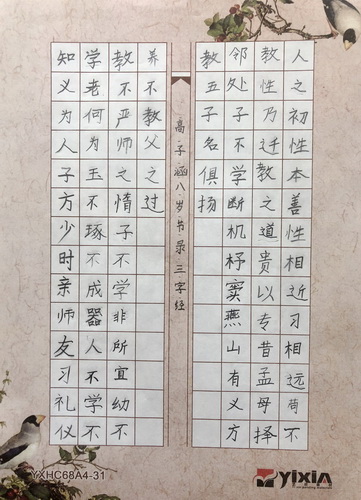 人之初性本善性相近习相远苟不
教性乃迁教之道贵以专昔孟母择
邻处子不学断机杼窦燕山有义方
教五子名俱扬
高子涵八岁节录三字经
养不教父之过
教不严师之惰子不学非所宜幼不
学老何为玉不琢不成器人不学不
知义为人子方少时亲师友习礼仪
YXHC68A4-31
YIXIA